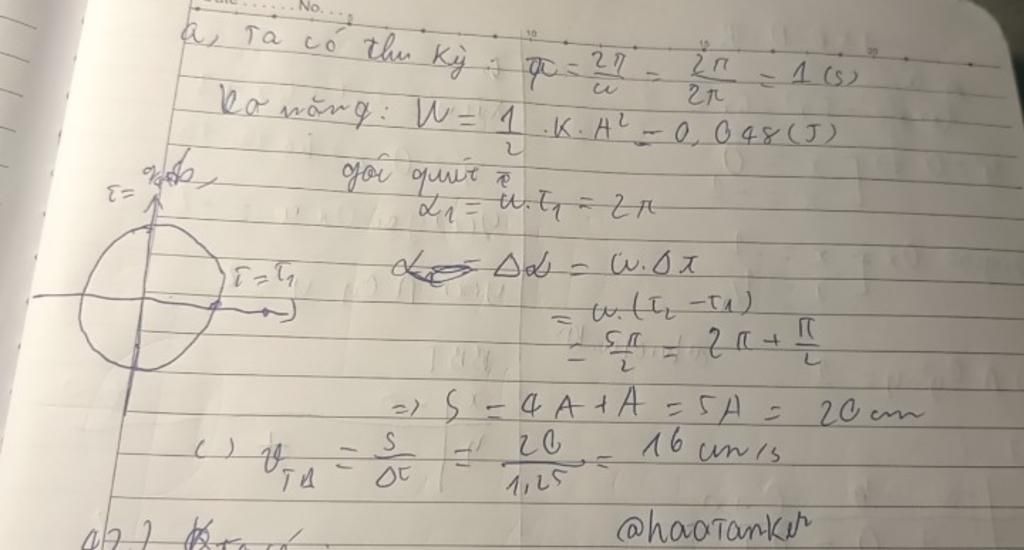 No.
a, Ta có thu Kỳ : T = 2π/ω = 2π/2π = 1 (s)
Cơ năng: W = 1/2 . K . A² = 0,048 (J)
góc quét
α₁ = ω.t₁ = 2π
t = t₁
Δα = ω.Δt
= ω.(t₂ - t₁)
= 5π/2 = 2π + π/2
=> S = 4A + A = 5A = 20 cm
c) vTB = S/Δt = 20/1,25 = 16 cm/s
@haoTanker